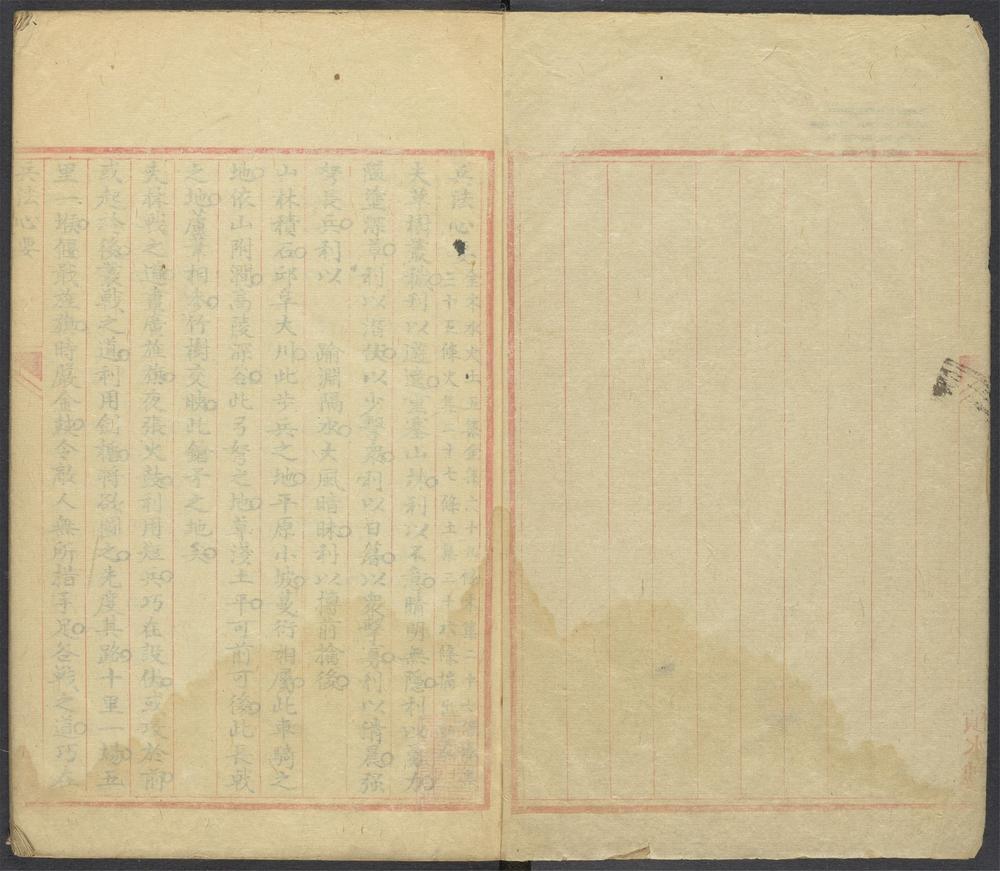 兵法心
金木水火土五集金集六十九條木集二十七條水集
三十五條火集三十七條土集二十六條摘出
夫草樹叢穢利以遁逃塞山 利以不意晴明無隱利以勇力
隘塗深草利以潛伏以少擊衆利以日暮以衆擊寡利以清晨强
弩長兵利以踰淵隔水大風暗昧利以搏前擒後
山林積石邱阜大川此步兵之地平原小坡蔓衍相屬此車騎之
地依山附澗高陵深谷此弓弩之地草淺土平可前可後此長戟
之地蘆葦相參竹樹交映此鎗矛之地矣
夫林戰之道晝廣旌旗夜張火鼓利用短兵巧在設伏或攻於前
或起於後叢戰之道利用劍楯將欲圖之先度其路十里一場五
里一堠偃戢旌旗時嚴金鼓令敵人無所措手足谷戰之道巧在
兵法心要